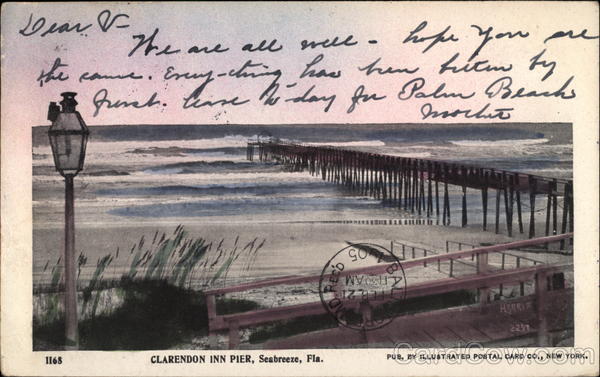 Dear V-
We are all well - hope you are
the same. Every-thing has been bitten by
frost. Leave to-day for Palm Beach
Mother
REC'D.
1905
HARRIS
2237
1168 CLARENDON INN PIER, Seabreeze, Fla. PUB. BY ILLUSTRATED POSTAL CARD CO., NEW YORK.
CardCow.com